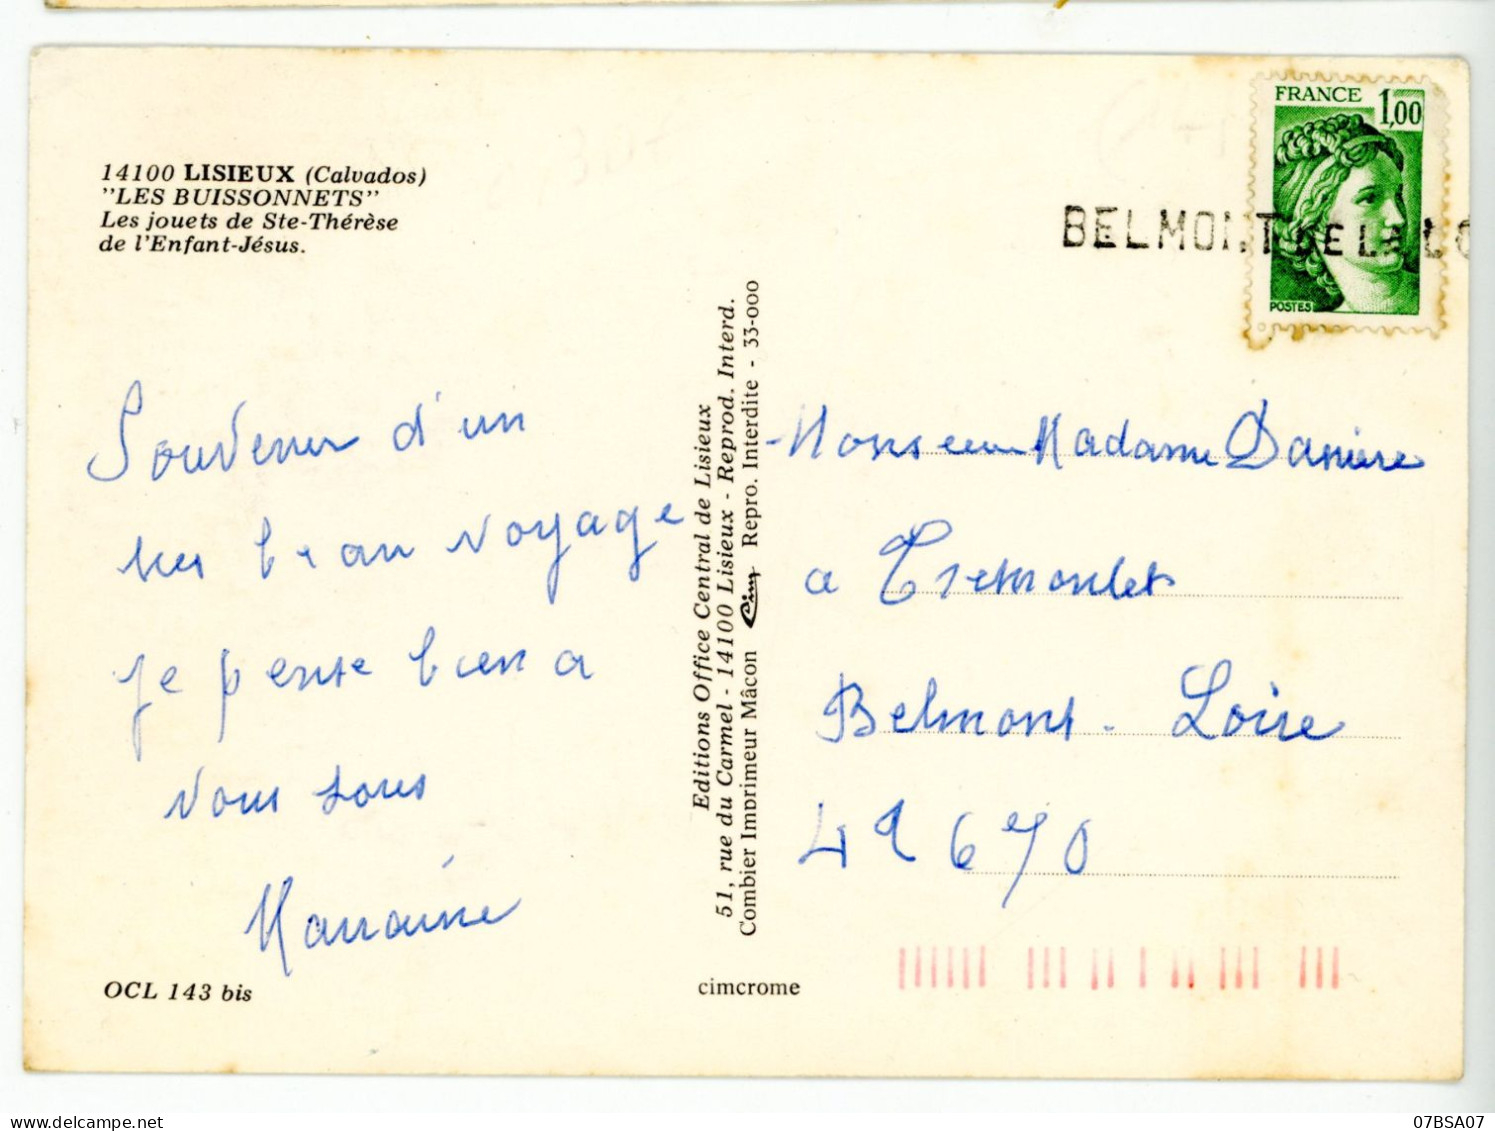 14100 LISIEUX (Calvados)
"LES BUISSONNETS"
Les jouets de Ste-Thérèse
de l'Enfant-Jésus.
FRANCE 1,00
POSTES
BELMONT DE LA LO
Souvenir d'un
tres beau voyage
je pense bien a
vous tous
Marraine
Editions Office Central de Lisieux
51, rue du Carmel - 14100 Lisieux - Reprod. Interd.
Combier Imprimeur Mâcon Cim Repro. Interdite - 33-000
Monsieur Madame Danière
a Tremontet
Belmont - Loire
42670
OCL 143 bis
cimcrome
07BSA07